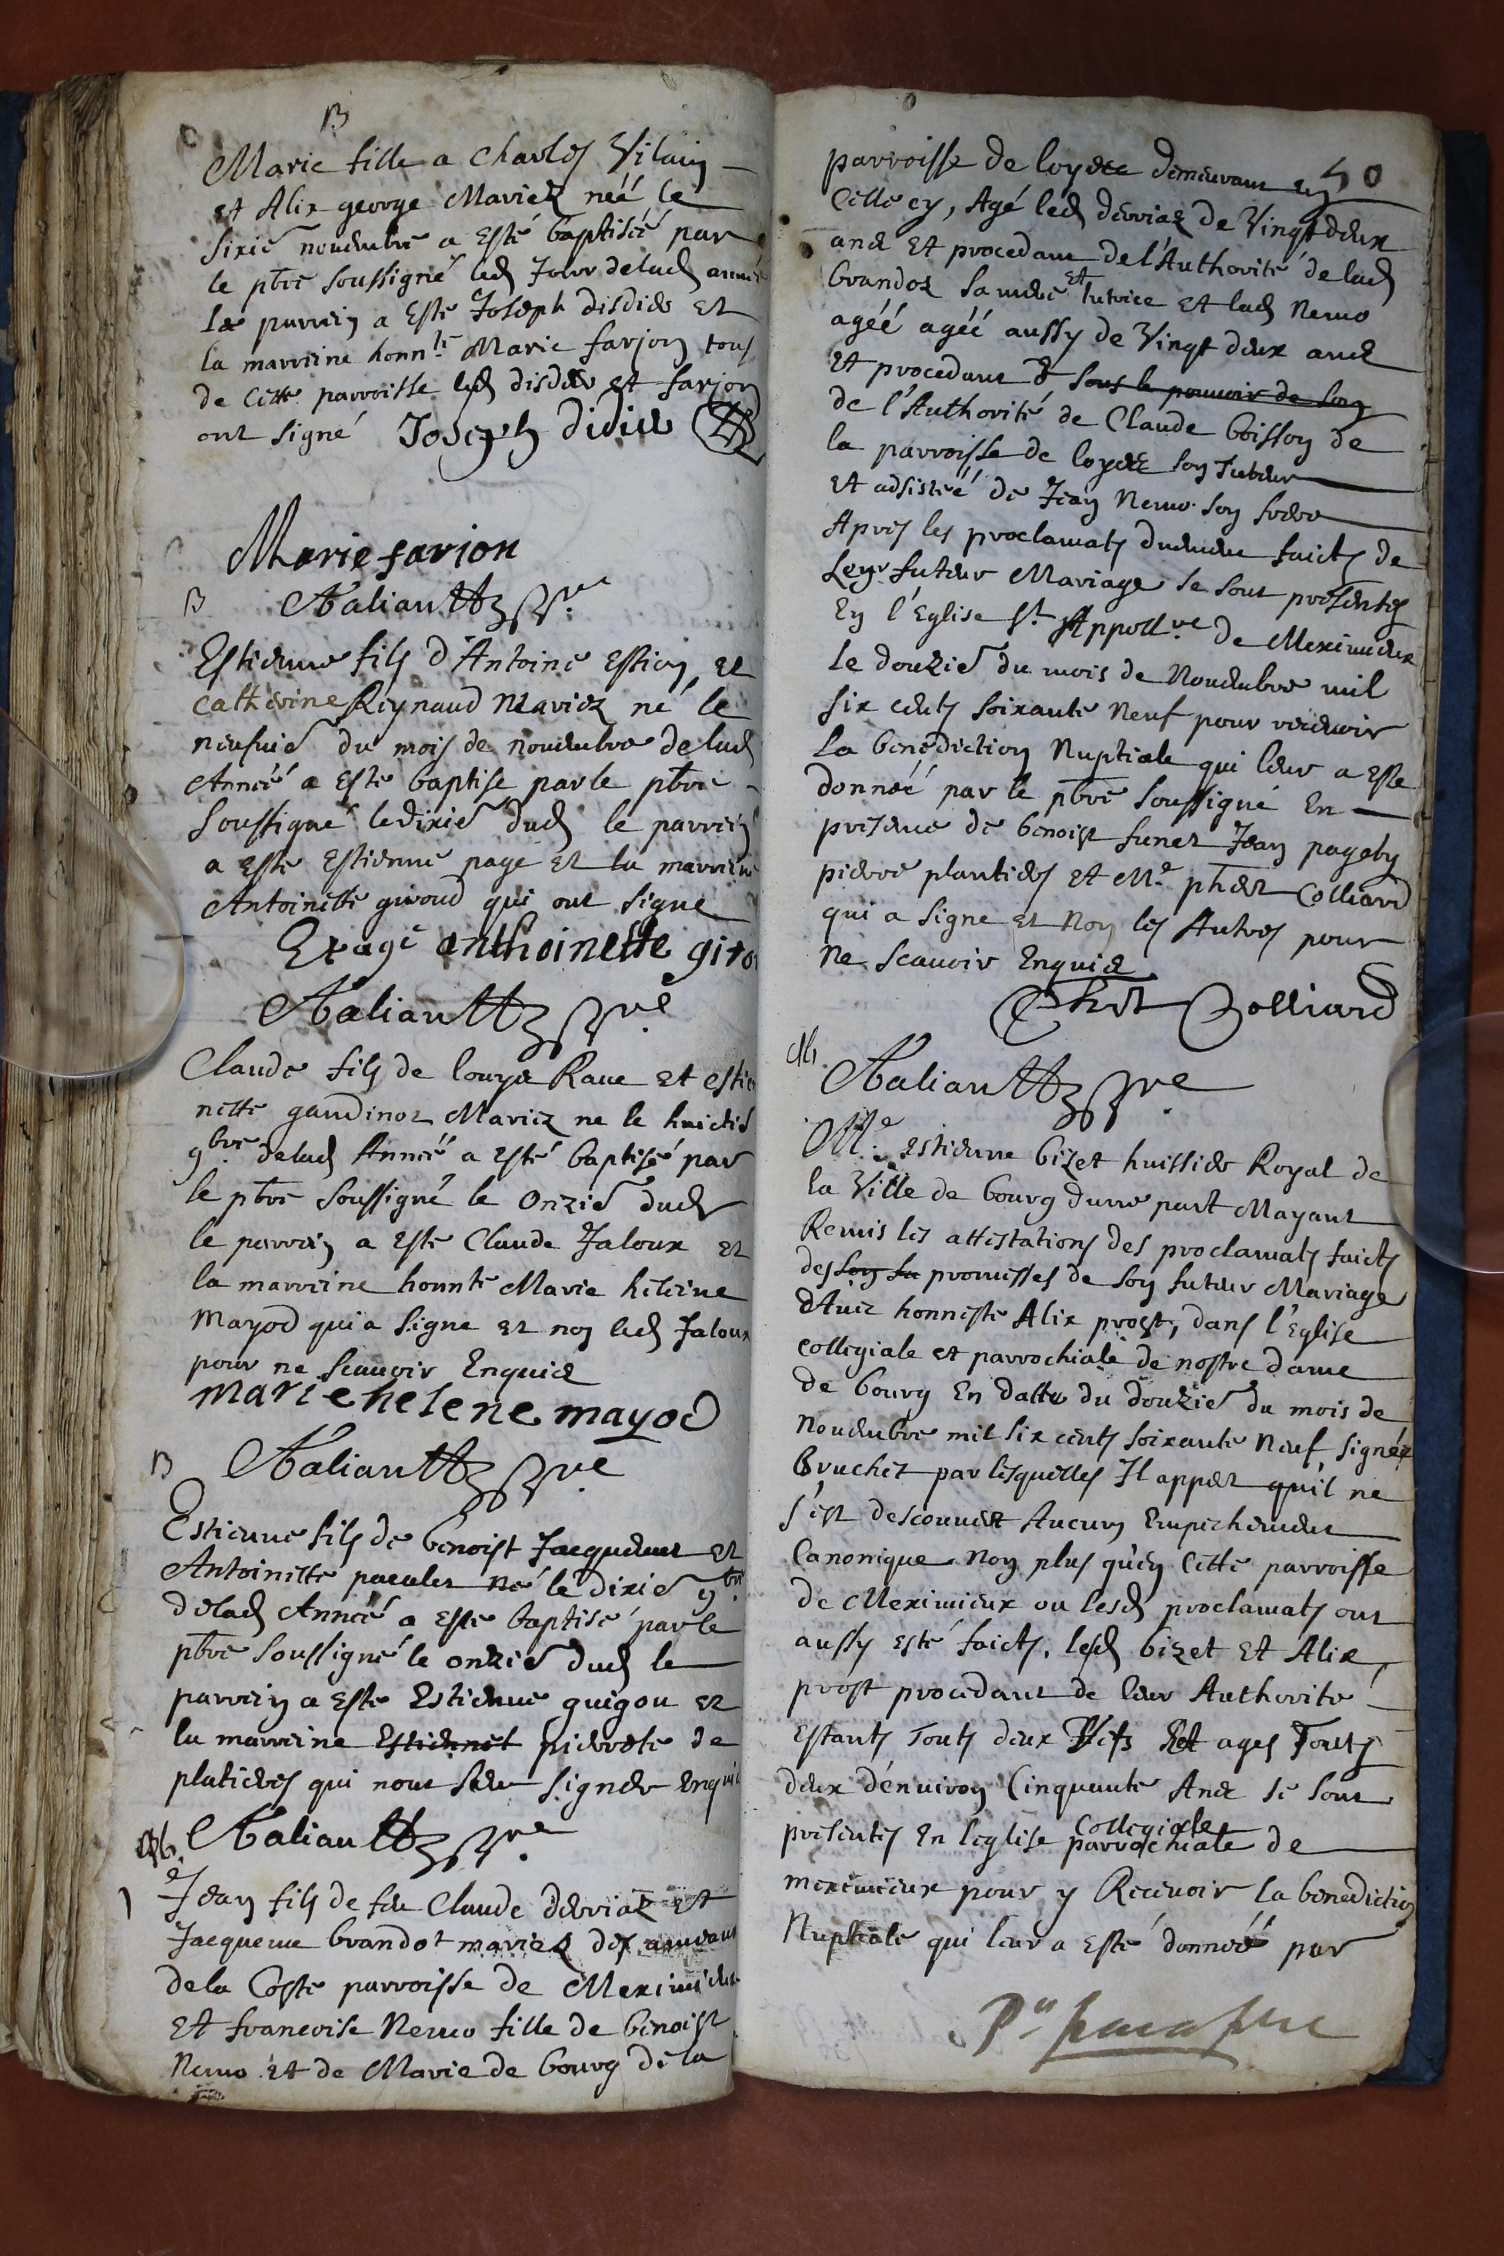 B
Marie fille a Charles Vilain
et Alix george Mariez néé le
sixié nouembre a Esté baptiséé par
le pbre soussigné led Jour de lad anné
Le parrein a Esté Joseph disdier Et
la marreine honnte Marie farjon tous
de Cette parroisse led disdier et farjon
ont signé Joseph didier
Marie farion
B Aaliautt pbre
Estienne fils d'Antoine Estion et
Catherine Reynaud Mariez né le
neufuié du mois de nouembre de lad
Annéé a Esté baptise par le pbre
soussigné le dixié dud le parrein
a Este Estienne page et la marreine
Antoinette giroud qui ont signe
E page anthoinette giro
Aaliautt pbre
Claude fils de louys Raue et estie
nette gaudinot Mariez ne le huictié
9bre delad Annéé a Esté baptisé par
le pbre soussigné le Onzié dud
le parrein a Este Claude Jaloux et
la marreine honnte Marie heleine
Mayod qui a signe et non led Jaloux
pour ne scauoir Enquis
marie helene mayod
B Aaliautt pbre
Estienne fils de benoist Jacquemet et
Antoinette pacalet Né le dixié 9bre
delad Annéé a Este baptisé par le
pbre soussigné le onzié dud le
parrein a Este Estienne guigou et
la marreine Estiennet pierrete de
platieres qui nont sceu signer enqui
M. Aaliautt pbre
Jean fils de feu Claude derriaz Et
Jacqueme brandot mariez des
de la Coste parroisse de Meximieux
Et francoise Nemo fille de benoist
Nemo Et de Marie de bourg de la
50
parroisse de loyes demeurant en
Celle cy, Agé led derriaz de Vingt deux
ans Et procedant de l'Authorité de lad
brandot sa mere et tutrice et lad Nemo
agéé agéé aussy de Vingt deux ans
Et procedant sous le pouuoir de son
de l'Authorité de Claude boisson de
la parroisse de loyes son Tuteur
et adsistéé de Jean Nemo son frere
Apres les proclamats duement faicts de
Leur futeur Mariage se sont presentes
En l'Eglise St Appollre de Meximieux
le douzié du mois de Nouembre mil
six cents soixante Neuf pour receuoir
La benediction Nuptiale qui leur a esté
donnéé par le pbre soussigné En
presence de benoist funet Jean pageby
pierre plantier et Me phert Colliard
qui a signe et Non les Autres pour
ne scauoir Enquis
Phert Colliard
M. Aaliautt pbre
Me Estienne bizet huissier Royal de
la Ville de bourg dune part Mayant
Remis les attestations des proclamats faicts
des son fu promisses de son futeur Mariage
d'Auec honneste Alix prost, dans l'Eglise
collegiale et parrochiale de nostre dame
de bourg En datte du douzié du mois de
Nouembre mil six cents soixante Neuf, signéz
Bruchet par lesquelles Il appert qu'il ne
s'est descouuert Aucun Empechement
Canonique Non plus qu'en Cette parroisse
de Meximieux ou lesd proclamats ont
aussy esté faicts, lesd bizet Et Alix
prost procedant de leur Authorité
Estants Touts deux Vefs Et agés Touts
deux dénuiron Cinquante Ans se sont
presentes En l'eglise Collegiale parrochiale de
meximieux pour y Receuoir la benediction
Nuptiale qui leur a Esté donnéé par